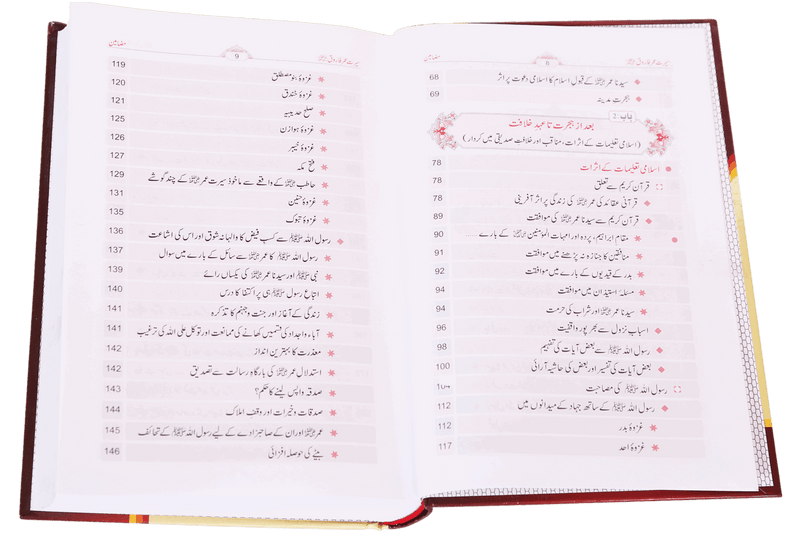 سیرت عمر فاروق ﷜ 8 مضامین
سیدنا عمر ﷜ کے قبول اسلام کا اسلامی دعوت پر اثر 68
ہجرت مدینہ 69
باب: 2
بعد از ہجرت تا عہد خلافت
(اسلامی تعلیمات کے اثرات، مناقب اور خلافت صدیقی میں کردار)
اسلامی تعلیمات کے اثرات 78
قرآن کریم سے تعلق 78
قرآنی عقائد کی عمر ﷜ کی زندگی پر اثر آفرینی 78
قرآن کریم سے سیدنا عمر ﷜ کی موافقت 89
مقام ابراہیم، پردہ اور امہات المؤمنین کے بارے..... 90
منافقین کا جنازہ نہ پڑھنے میں موافقت 91
بدر کے قیدیوں کے بارے میں موافقت 92
مسئلہ استیذان میں موافقت 94
سیدنا عمر ﷜ اور شراب کی حرمت 94
اسباب نزول سے بھر پور واقفیت 96
رسول اللہ ﷺ سے بعض آیات کی تفہیم 98
بعض آیات کی تفسیر اور بعض کی حاشیہ آرائی 100
رسول اللہ ﷺ کی مصاحبت
رسول اللہ ﷺ کے ساتھ جہاد کے میدانوں میں 112
غزوۂ بدر 112
غزوۂ احد 117
سیرت عمر فاروق ﷜ 9 مضامین
غزوۂ بنو مصطلق 119
غزوۂ خندق 120
صلح حدیبیہ 121
غزوۂ ہوازن 125
غزوۂ خیبر 126
فتح مکہ 127
حاطب ﷜ کے واقعے سے ماخوذ سیرت عمر ﷜ کے چند گوشے 129
غزوۂ حنین 131
غزوۂ تبوک 135
رسول اللہ ﷺ سے کسب فیض کا والہانہ شوق اور اس کی اشاعت 136
رسول اللہ ﷺ کا عمر ﷜ سے سائل کے بارے میں سوال 137
نبی ﷺ اور سیدنا عمر ﷜ کی یکساں رائے 139
اتباع رسول ﷺ ہی پر اکتفا کا درس 140
زندگی کے آغاز اور جنت و جہنم کا تذکرہ 141
آباء و اجداد کی قسمیں کھانے کی ممانعت اور توکل علی اللہ کی ترغیب 141
معذرت کا بہترین انداز 142
استدلال عمر ﷜ کی بارگاہ رسالت سے تصدیق 142
صدقہ واپس لینے کا حکم؟ 143
صدقات و خیرات اور وقف املاک 144
عمر ﷜ اور ان کے صاحبزادے کے لیے رسول اللہ ﷺ کے تحائف 145
بیٹے کی حوصلہ افزائی 146